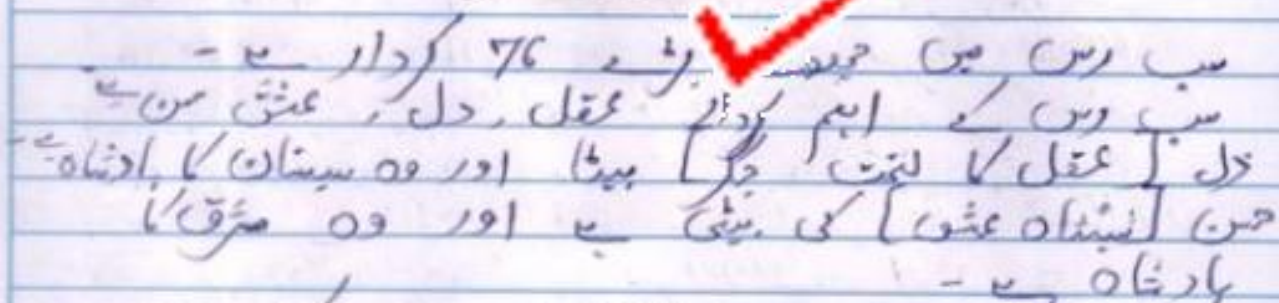 سب رس میں چھوٹے بڑے 76 کردار ہے -
سب رس کے اہم کردار عقل، دل، عشق حسن ہے -
دل [عقل کا لخت جگر] بیٹا اور وہ سیستان کا بادشاہ ہے -
حسن [شہنشاہ عشق] کی بیٹی ہے اور وہ مشرق کا
بادشاہ ہے -